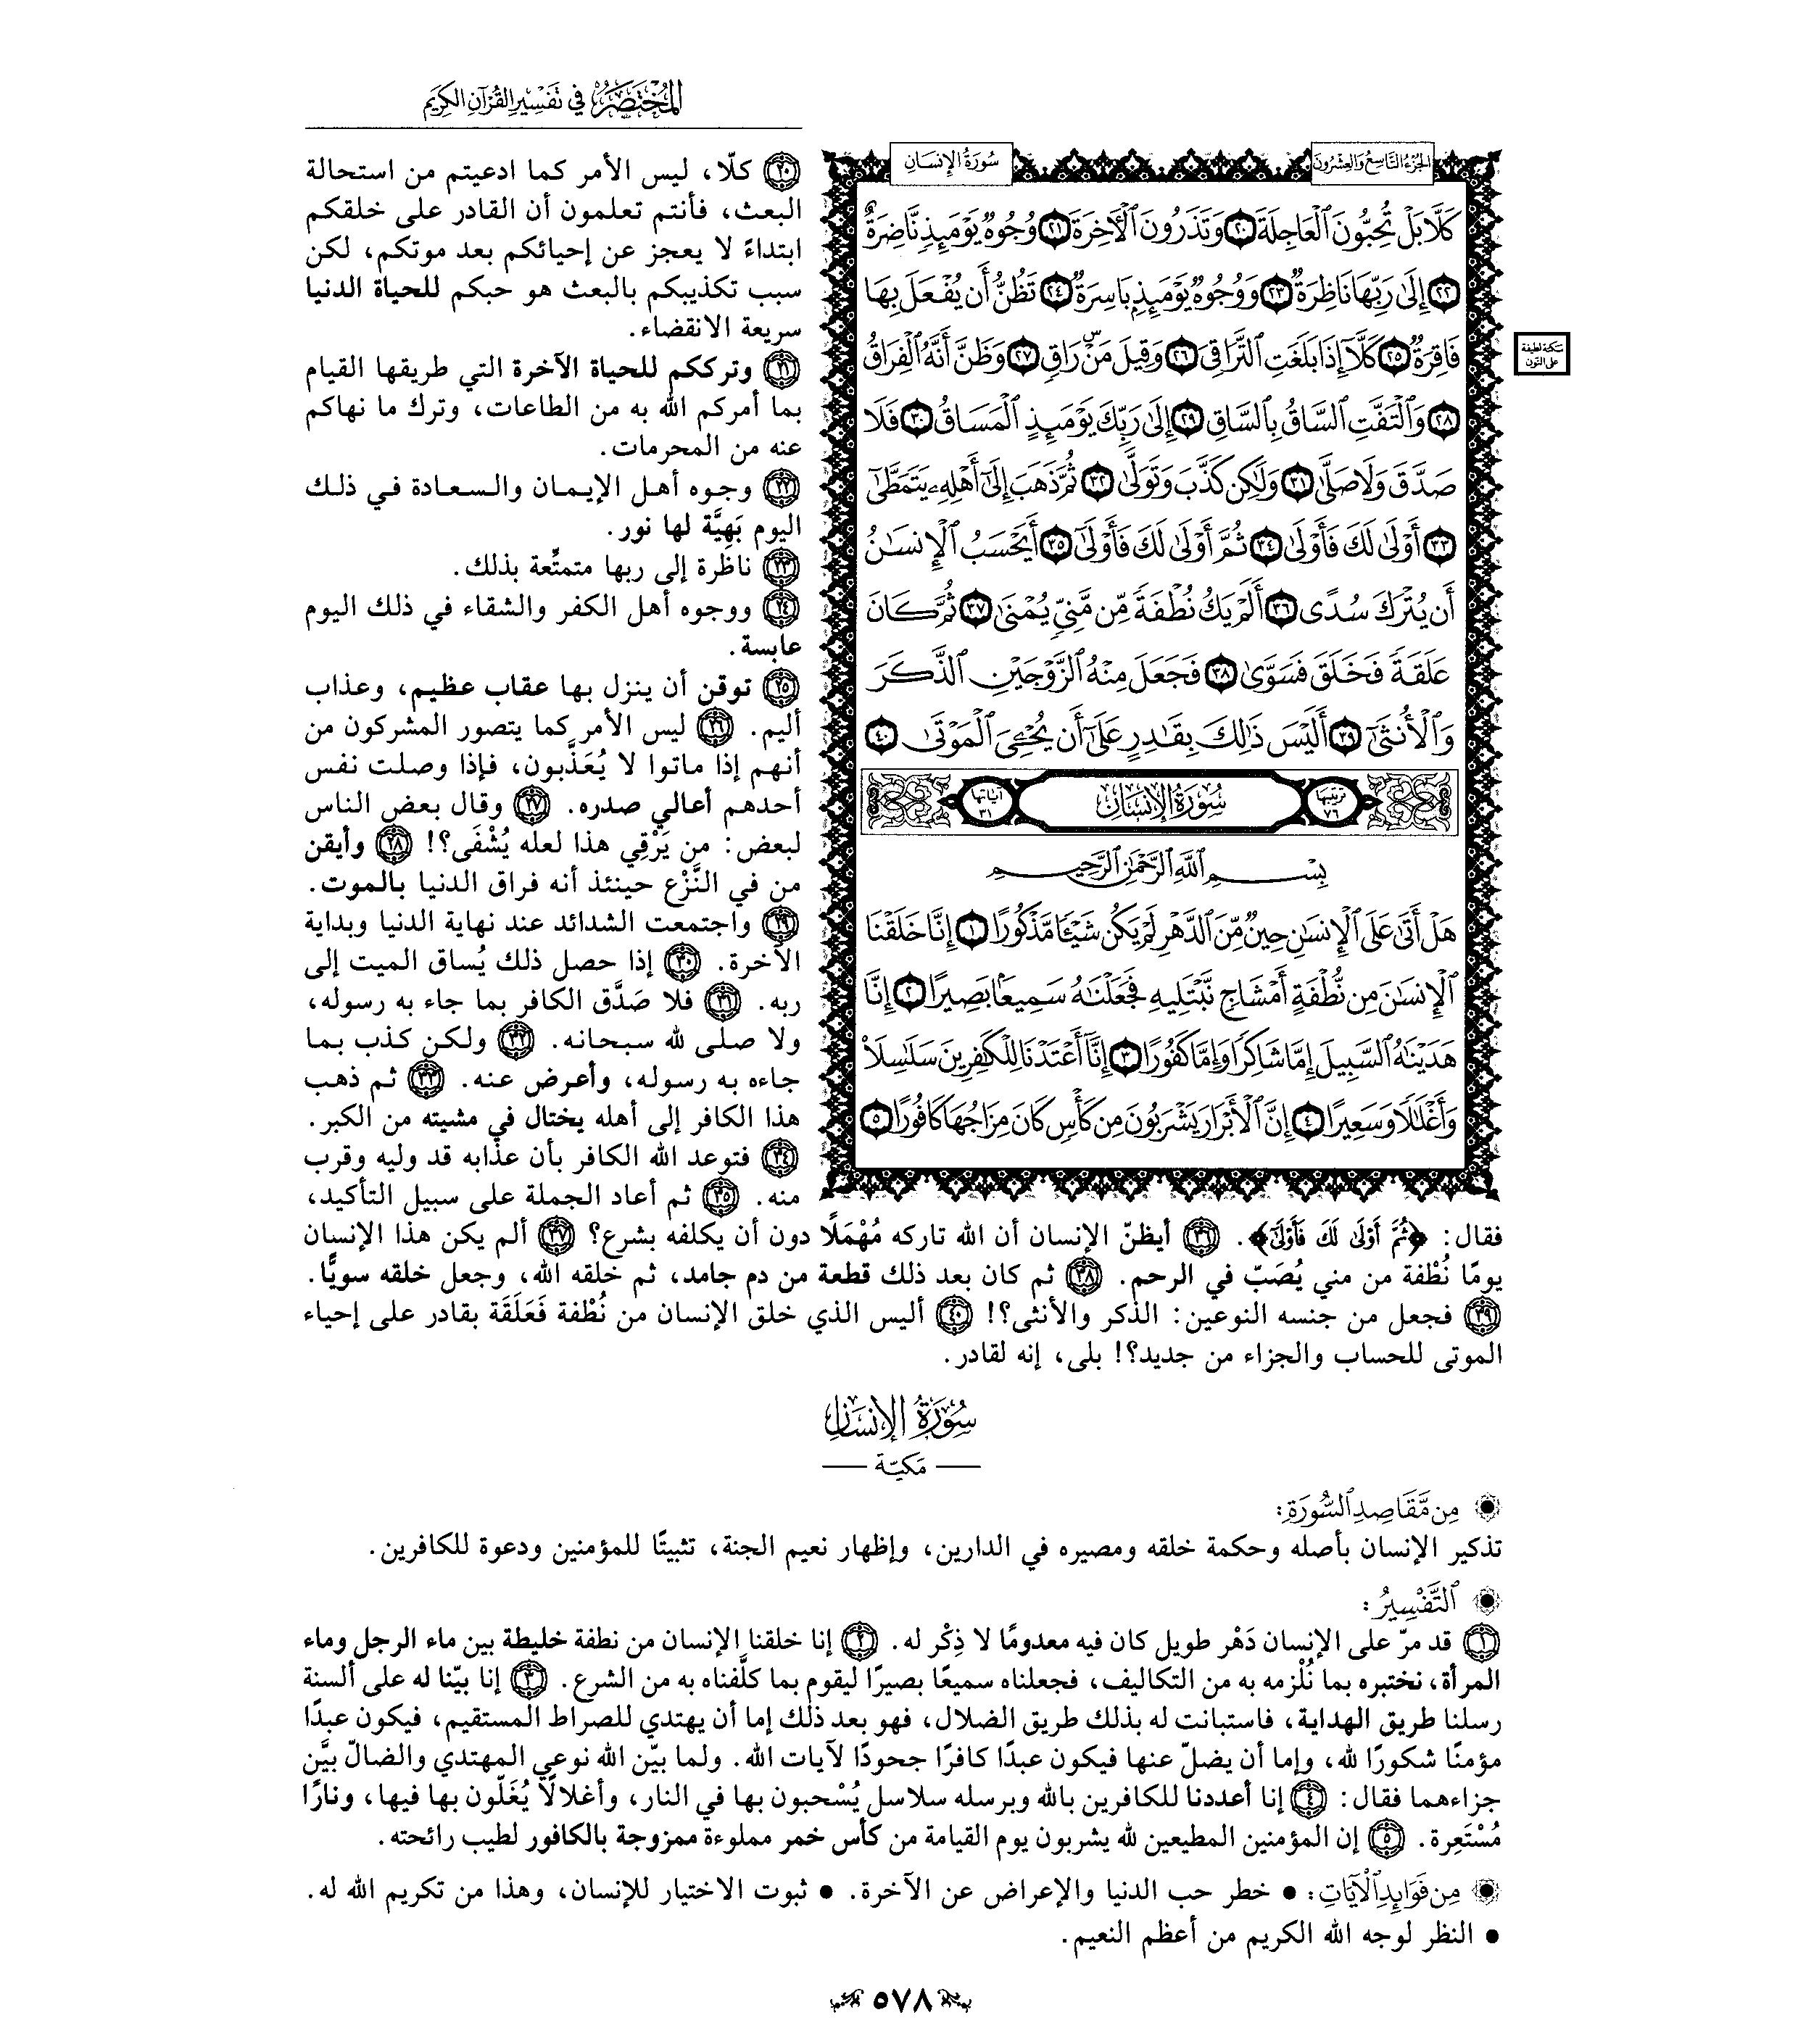 المُخْتَصَرُ فِي تَفْسِيرِ القُرْآنِ الكَرِيم
الجُزْءُ التَّاسِعُ وَالعِشْرُونَ
سُورَةُ الإِنسَانِ
كَلَّا بَلْ تُحِبُّونَ ٱلْعَاجِلَةَ ٢٠ وَتَذَرُونَ ٱلْأٓخِرَةَ ٢١ وُجُوهٌ يَوْمَئِذٖ نَّاضِرَةٌ
٢٢ إِلَىٰ رَبِّهَا نَاظِرَةٌ ٢٣ وَوُجُوهٌ يَوْمَئِذِۭ بَاسِرَةٌ ٢٤ تَظُنُّ أَن يُفْعَلَ بِهَا
فَاقِرَةٌ ٢٥ كَلَّآ إِذَا بَلَغَتِ ٱلتَّرَاقِيَ ٢٦ وَقِيلَ مَنْۜ رَاقٖ ٢٧ وَظَنَّ أَنَّهُ ٱلْفِرَاقُ
سكتة لطيفة
على النون
٢٨ وَٱلْتَفَّتِ ٱلسَّاقُ بِٱلسَّاقِ ٢٩ إِلَىٰ رَبِّكَ يَوْمَئِذٍ ٱلْمَسَاقُ ٣٠ فَلَا
صَدَّقَ وَلَا صَلَّىٰ ٣١ وَلَٰكِن كَذَّبَ وَتَوَلَّىٰ ٣٢ ثُمَّ ذَهَبَ إِلَىٰٓ أَهْلِهِۦ يَتَمَطَّىٰٓ
٣٣ أَوْلَىٰ لَكَ فَأَوْلَىٰ ٣٤ ثُمَّ أَوْلَىٰ لَكَ فَأَوْلَىٰٓ ٣٥ أَيَحْسَبُ ٱلْإِنسَٰنُ
أَن يُتْرَكَ سُدًى ٣٦ أَلَمْ يَكُ نُطْفَةٗ مِّن مَّنِيّٖ يُمْنَىٰ ٣٧ ثُمَّ كَانَ
عَلَقَةٗ فَخَلَقَ فَسَوَّىٰ ٣٨ فَجَعَلَ مِنْهُ ٱلزَّوْجَيْنِ ٱلذَّكَرَ
وَٱلْأُنثَىٰٓ ٣٩ أَلَيْسَ ذَٰلِكَ بِقَٰدِرٍ عَلَىٰٓ أَن يُحْـِۧيَ ٱلْمَوْتَىٰ ٤٠
ترتيبها ٧٦ سُورَةُ الإِنسَانِ آياتها ٣١
بِسْمِ ٱللَّهِ ٱلرَّحْمَٰنِ ٱلرَّحِيمِ
هَلْ أَتَىٰ عَلَى ٱلْإِنسَٰنِ حِينٌ مِّنَ ٱلدَّهْرِ لَمْ يَكُن شَيْـٔٗا مَّذْكُورًا ١ إِنَّا خَلَقْنَا
ٱلْإِنسَٰنَ مِن نُّطْفَةٍ أَمْشَاجٖ نَّبْتَلِيهِ فَجَعَلْنَٰهُ سَمِيعَۢا بَصِيرًا ٢ إِنَّا
هَدَيْنَٰهُ ٱلسَّبِيلَ إِمَّا شَاكِرٗا وَإِمَّا كَفُورًا ٣ إِنَّآ أَعْتَدْنَا لِلْكَٰفِرِينَ سَلَٰسِلَاْ
وَأَغْلَٰلٗا وَسَعِيرًا ٤ إِنَّ ٱلْأَبْرَارَ يَشْرَبُونَ مِن كَأْسٖ كَانَ مِزَاجُهَا كَافُورًا ٥
٢٠ كلّا، ليس الأمر كما ادعيتم من استحالة
البعث، فأنتم تعلمون أن القادر على خلقكم
ابتداءً لا يعجز عن إحيائكم بعد موتكم، لكن
سبب تكذيبكم بالبعث هو حبكم للحياة الدنيا
سريعة الانقضاء.
٢١ وترككم للحياة الآخرة التي طريقها القيام
بما أمركم الله به من الطاعات، وترك ما نهاكم
عنه من المحرمات.
٢٢ وجوه أهل الإيمان والسعادة في ذلك
اليوم بَهِيَّة لها نور.
٢٣ ناظرة إلى ربها متمتِّعة بذلك.
٢٤ ووجوه أهل الكفر والشقاء في ذلك اليوم
عابسة.
٢٥ توقن أن ينزل بها عقاب عظيم، وعذاب
أليم. ٢٦ ليس الأمر كما يتصور المشركون من
أنهم إذا ماتوا لا يُعَذَّبون، فإذا وصلت نفس
أحدهم أعالي صدره. ٢٧ وقال بعض الناس
لبعض: من يَرْقِي هذا لعله يُشْفَى؟! ٢٨ وأيقن
من في النَّزْع حينئذ أنه فراق الدنيا بالموت.
٢٩ واجتمعت الشدائد عند نهاية الدنيا وبداية
الآخرة. ٣٠ إذا حصل ذلك يُساق الميت إلى
ربه. ٣١ فلا صَدَّق الكافر بما جاء به رسوله،
ولا صلى لله سبحانه. ٣٢ ولكن كذب بما
جاءه به رسوله، وأعرض عنه. ٣٣ ثم ذهب
هذا الكافر إلى أهله يختال في مشيته من الكبر.
٣٤ فتوعد الله الكافر بأن عذابه قد وليه وقرب
منه. ٣٥ ثم أعاد الجملة على سبيل التأكيد،
فقال: ﴿ثُمَّ أَوْلَىٰ لَكَ فَأَوْلَىٰٓ﴾. ٣٦ أيظنّ الإنسان أن الله تاركه مُهْمَلًا دون أن يكلفه بشرع؟ ٣٧ ألم يكن هذا الإنسان
يومًا نُطْفة من مني يُصَبّ في الرحم. ٣٨ ثم كان بعد ذلك قطعة من دم جامد، ثم خلقه الله، وجعل خلقه سويًّا.
٣٩ فجعل من جنسه النوعين: الذكر والأنثى؟! ٤٠ أليس الذي خلق الإنسان من نُطْفة فَعَلَقَة بقادر على إحياء
الموتى للحساب والجزاء من جديد؟! بلى، إنه لقادر.
سُورَةُ الإِنسَانِ
مَكِيّة
مِن مَّقَاصِدِ ٱلسُّورَةِ:
تذكير الإنسان بأصله وحكمة خلقه ومصيره في الدارين، وإظهار نعيم الجنة، تثبيتًا للمؤمنين ودعوة للكافرين.
ٱلتَّفْسِيرُ:
١ قد مرّ على الإنسان دَهْر طويل كان فيه معدومًا لا ذِكْر له. ٢ إنا خلقنا الإنسان من نطفة خليطة بين ماء الرجل وماء
المرأة، نختبره بما نُلْزمه به من التكاليف، فجعلناه سميعًا بصيرًا ليقوم بما كلَّفناه به من الشرع. ٣ إنا بيّنا له على ألسنة
رسلنا طريق الهداية، فاستبانت له بذلك طريق الضلال، فهو بعد ذلك إما أن يهتدي للصراط المستقيم، فيكون عبدًا
مؤمنًا شكورًا لله، وإما أن يضلّ عنها فيكون عبدًا كافرًا جحودًا لآيات الله. ولما بيّن الله نوعي المهتدي والضالّ بيَّن
جزاءهما فقال: ٤ إنا أعددنا للكافرين بالله وبرسله سلاسل يُسْحبون بها في النار، وأغلالًا يُغَلّون بها فيها، ونارًا
مُسْتَعِرة. ٥ إن المؤمنين المطيعين لله يشربون يوم القيامة من كأس خمر مملوءة ممزوجة بالكافور لطيب رائحته.
مِن فَوَائِدِ ٱلْآيَاتِ: • خطر حب الدنيا والإعراض عن الآخرة. • ثبوت الاختيار للإنسان، وهذا من تكريم الله له.
• النظر لوجه الله الكريم من أعظم النعيم.
٥٧٨